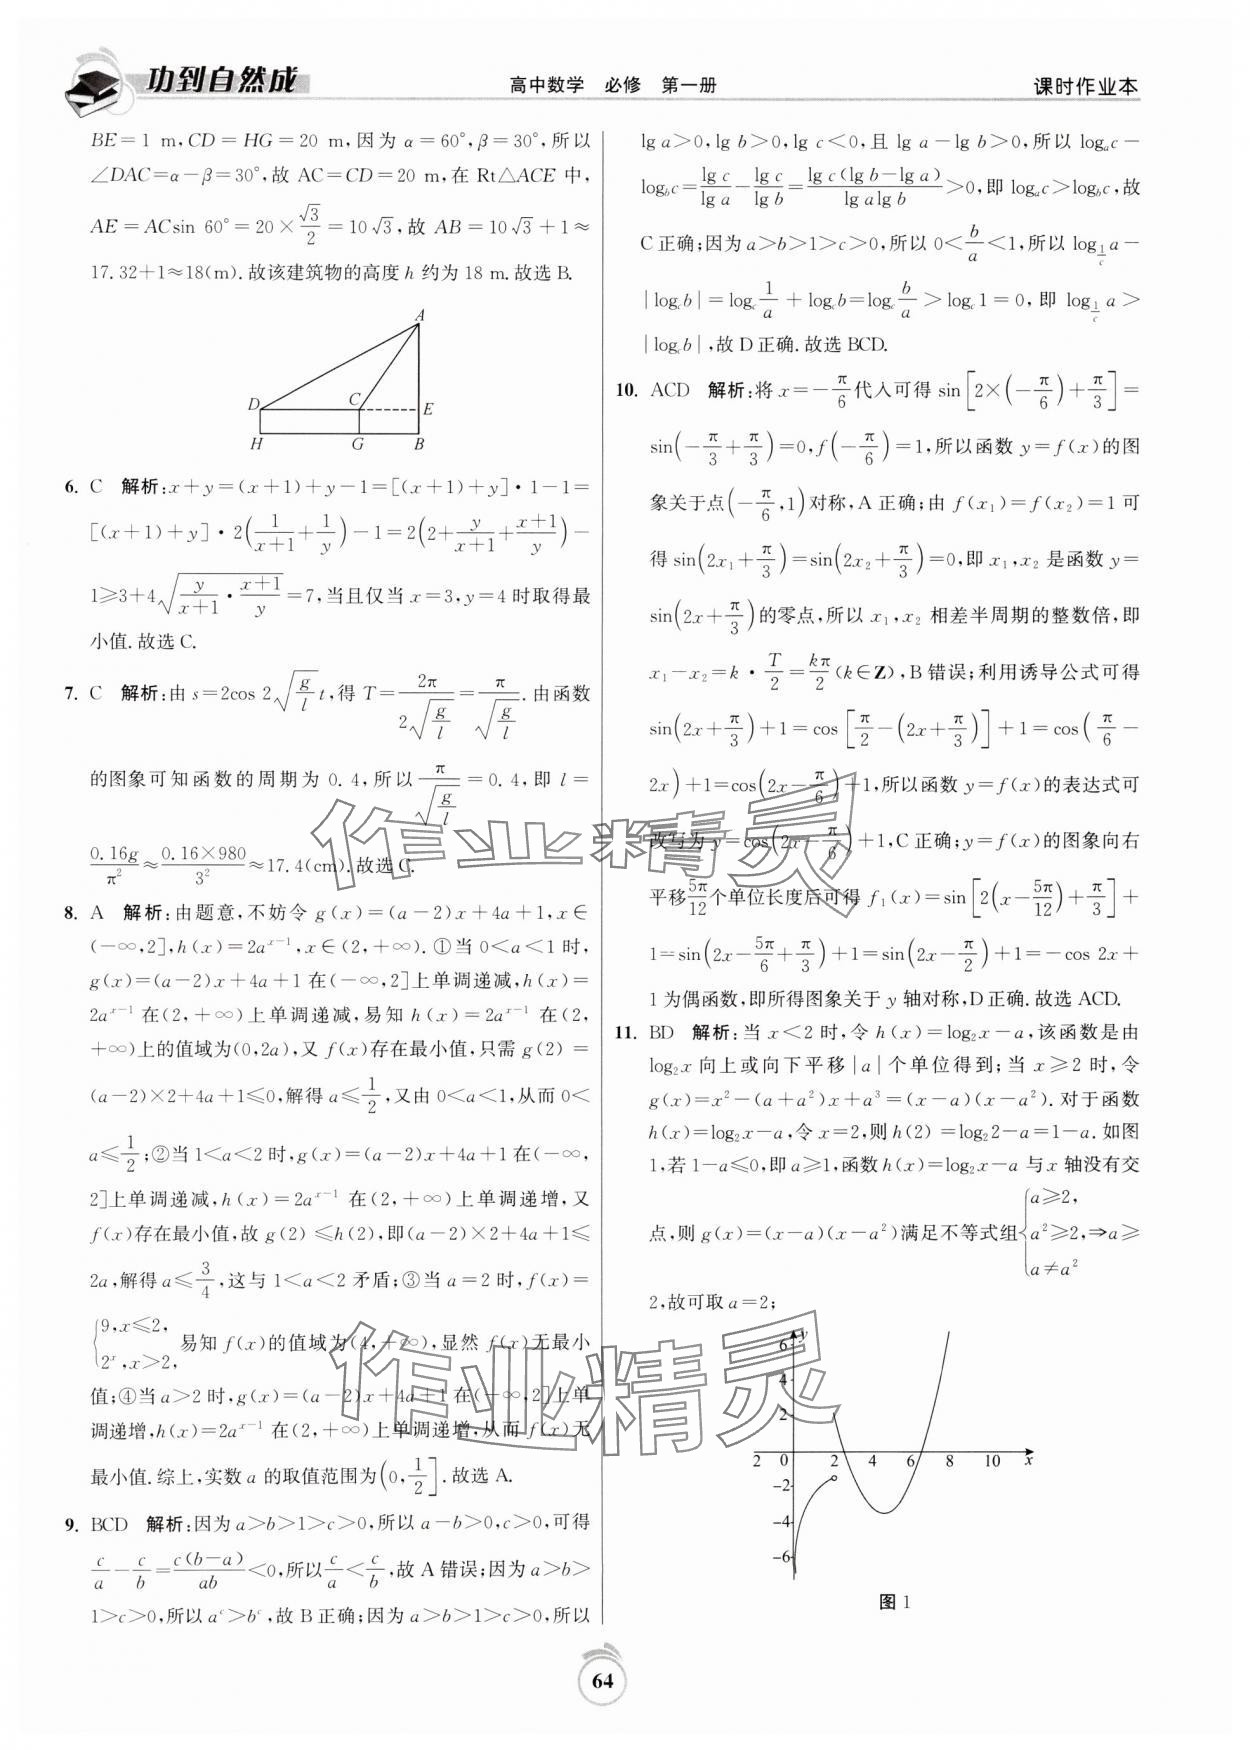 功到自然成
高中数学 必修 第一册
课时作业本
BE=1 m,CD=HG=20 m,因为 α=60°,β=30°,所以
∠DAC=α-β=30°,故 AC=CD=20 m,在 Rt△ACE 中,
AE=ACsin 60°=20×√3/2=10√3,故 AB=10√3+1≈
17.32+1≈18(m).故该建筑物的高度 h 约为 18 m.故选 B.
A
D C E
H G B
6. C 解析:x+y=(x+1)+y-1=[(x+1)+y]·1-1=
[(x+1)+y]·2(1/(x+1)+1/y)-1=2(2+y/(x+1)+(x+1)/y)-
1≥3+4√(y/(x+1)·(x+1)/y)=7,当且仅当 x=3,y=4 时取得最
小值.故选 C.
7. C 解析:由 s=2cos 2√(g/l) t,得 T=2π/(2√(g/l))=π/√(g/l).由函数
的图象可知函数的周期为 0.4,所以 π/√(g/l)=0.4,即 l=
0.16g/π²≈(0.16×980)/3²≈17.4(cm).故选 C.
8. A 解析:由题意,不妨令 g(x)=(a-2)x+4a+1,x∈
(-∞,2],h(x)=2aˣ⁻¹,x∈(2,+∞).①当 0<a<1 时,
g(x)=(a-2)x+4a+1 在(-∞,2]上单调递减,h(x)=
2aˣ⁻¹ 在(2,+∞)上单调递减,易知 h(x)=2aˣ⁻¹ 在(2,
+∞)上的值域为(0,2a),又 f(x)存在最小值,只需 g(2)=
(a-2)×2+4a+1≤0,解得 a≤1/2,又由 0<a<1,从而 0<
a≤1/2;②当 1<a<2 时,g(x)=(a-2)x+4a+1 在(-∞,
2]上单调递减,h(x)=2aˣ⁻¹ 在(2,+∞)上单调递增,又
f(x)存在最小值,故 g(2)≤h(2),即(a-2)×2+4a+1≤
2a,解得 a≤3/4,这与 1<a<2 矛盾;③当 a=2 时,f(x)=
{9,x≤2, 2ˣ,x>2, 易知 f(x)的值域为(4,+∞),显然 f(x)无最小
值;④当 a>2 时,g(x)=(a-2)x+4a+1 在(-∞,2]上单
调递增,h(x)=2aˣ⁻¹ 在(2,+∞)上单调递增,从而 f(x)无
最小值.综上,实数 a 的取值范围为(0,1/2].故选 A.
9. BCD 解析:因为 a>b>1>c>0,所以 a-b>0,c>0,可得
c/a-c/b=c(b-a)/ab<0,所以 c/a<c/b,故 A 错误;因为 a>b>
1>c>0,所以 aᶜ>bᶜ,故 B 正确;因为 a>b>1>c>0,所以
lg a>0,lg b>0,lg c<0,且 lg a-lg b>0,所以 logₐc-
log_b c=lg c/lg a-lg c/lg b=lg c(lg b-lg a)/(lg alg b)>0,即 logₐc>log_b c,故
C 正确;因为 a>b>1>c>0,所以 0<b/a<1,所以 log_(1/c) a-
|log_c b|=log_c 1/a+log_c b=log_c b/a>log_c 1=0,即 log_(1/c) a>
|log_c b|,故 D 正确.故选 BCD.
10. ACD 解析:将 x=-π/6代入可得 sin[2×(-π/6)+π/3]=
sin(-π/3+π/3)=0,f(-π/6)=1,所以函数 y=f(x)的图
象关于点(-π/6,1)对称,A 正确;由 f(x₁)=f(x₂)=1 可
得 sin(2x₁+π/3)=sin(2x₂+π/3)=0,即 x₁,x₂ 是函数 y=
sin(2x+π/3)的零点,所以 x₁,x₂ 相差半周期的整数倍,即
x₁-x₂=k·T/2=kπ/2(k∈Z),B 错误;利用诱导公式可得
sin(2x+π/3)+1=cos[π/2-(2x+π/3)]+1=cos(π/6-
2x)+1=cos(2x-π/6)+1,所以函数 y=f(x)的表达式可
改写为 y=cos(2x-π/6)+1,C 正确;y=f(x)的图象向右
平移5π/12个单位长度后可得 f₁(x)=sin[2(x-5π/12)+π/3]+
1=sin(2x-5π/6+π/3)+1=sin(2x-π/2)+1=-cos 2x+
1 为偶函数,即所得图象关于 y 轴对称,D 正确.故选 ACD.
11. BD 解析:当 x<2 时,令 h(x)=log₂x-a,该函数是由
log₂x 向上或向下平移|a|个单位得到;当 x≥2 时,令
g(x)=x²-(a+a²)x+a³=(x-a)(x-a²).对于函数
h(x)=log₂x-a,令 x=2,则 h(2)=log₂2-a=1-a.如图
1,若 1-a≤0,即 a≥1,函数 h(x)=log₂x-a 与 x 轴没有交
点,则 g(x)=(x-a)(x-a²)满足不等式组{a≥2, a²≥2, a≠a² ⇒a≥
2,故可取 a=2;
y
6
4
2
2 0 2 4 6 8 10 x
-2
-4
-6
图 1
作业精灵
作业精灵
64